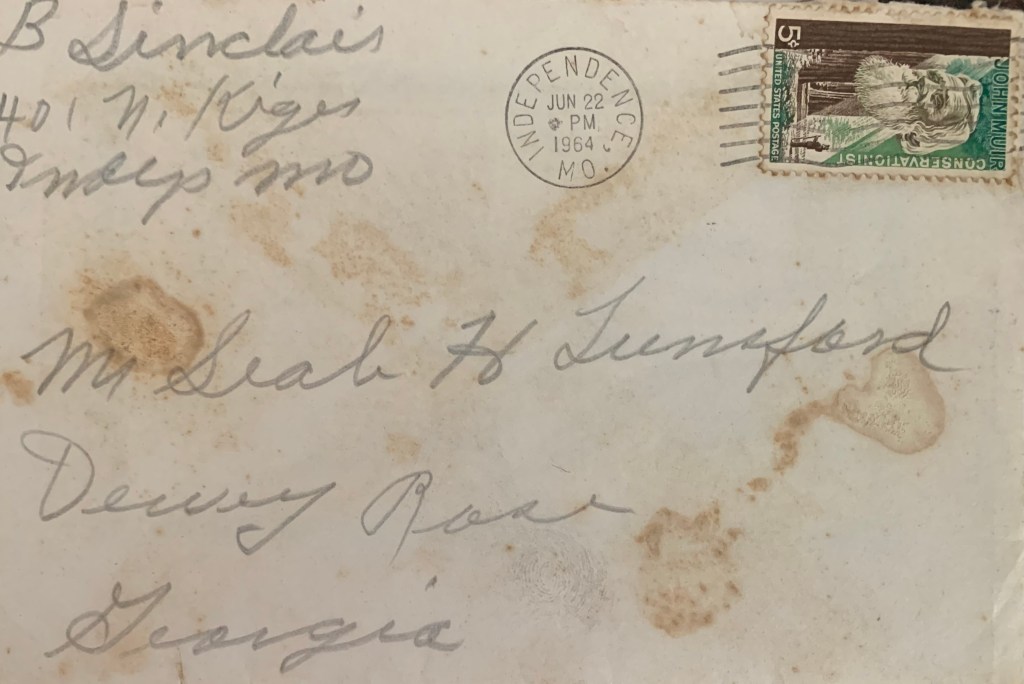 B Sinclair
401 N. Kiger
Indep Mo
INDEPENDENCE
JUN 22
PM
1964
MO.
5¢
UNITED STATES POSTAGE
JOHN MUIR
CONSERVATIONIST
Mr Seab H Lunsford
Dewey Rose
Georgia